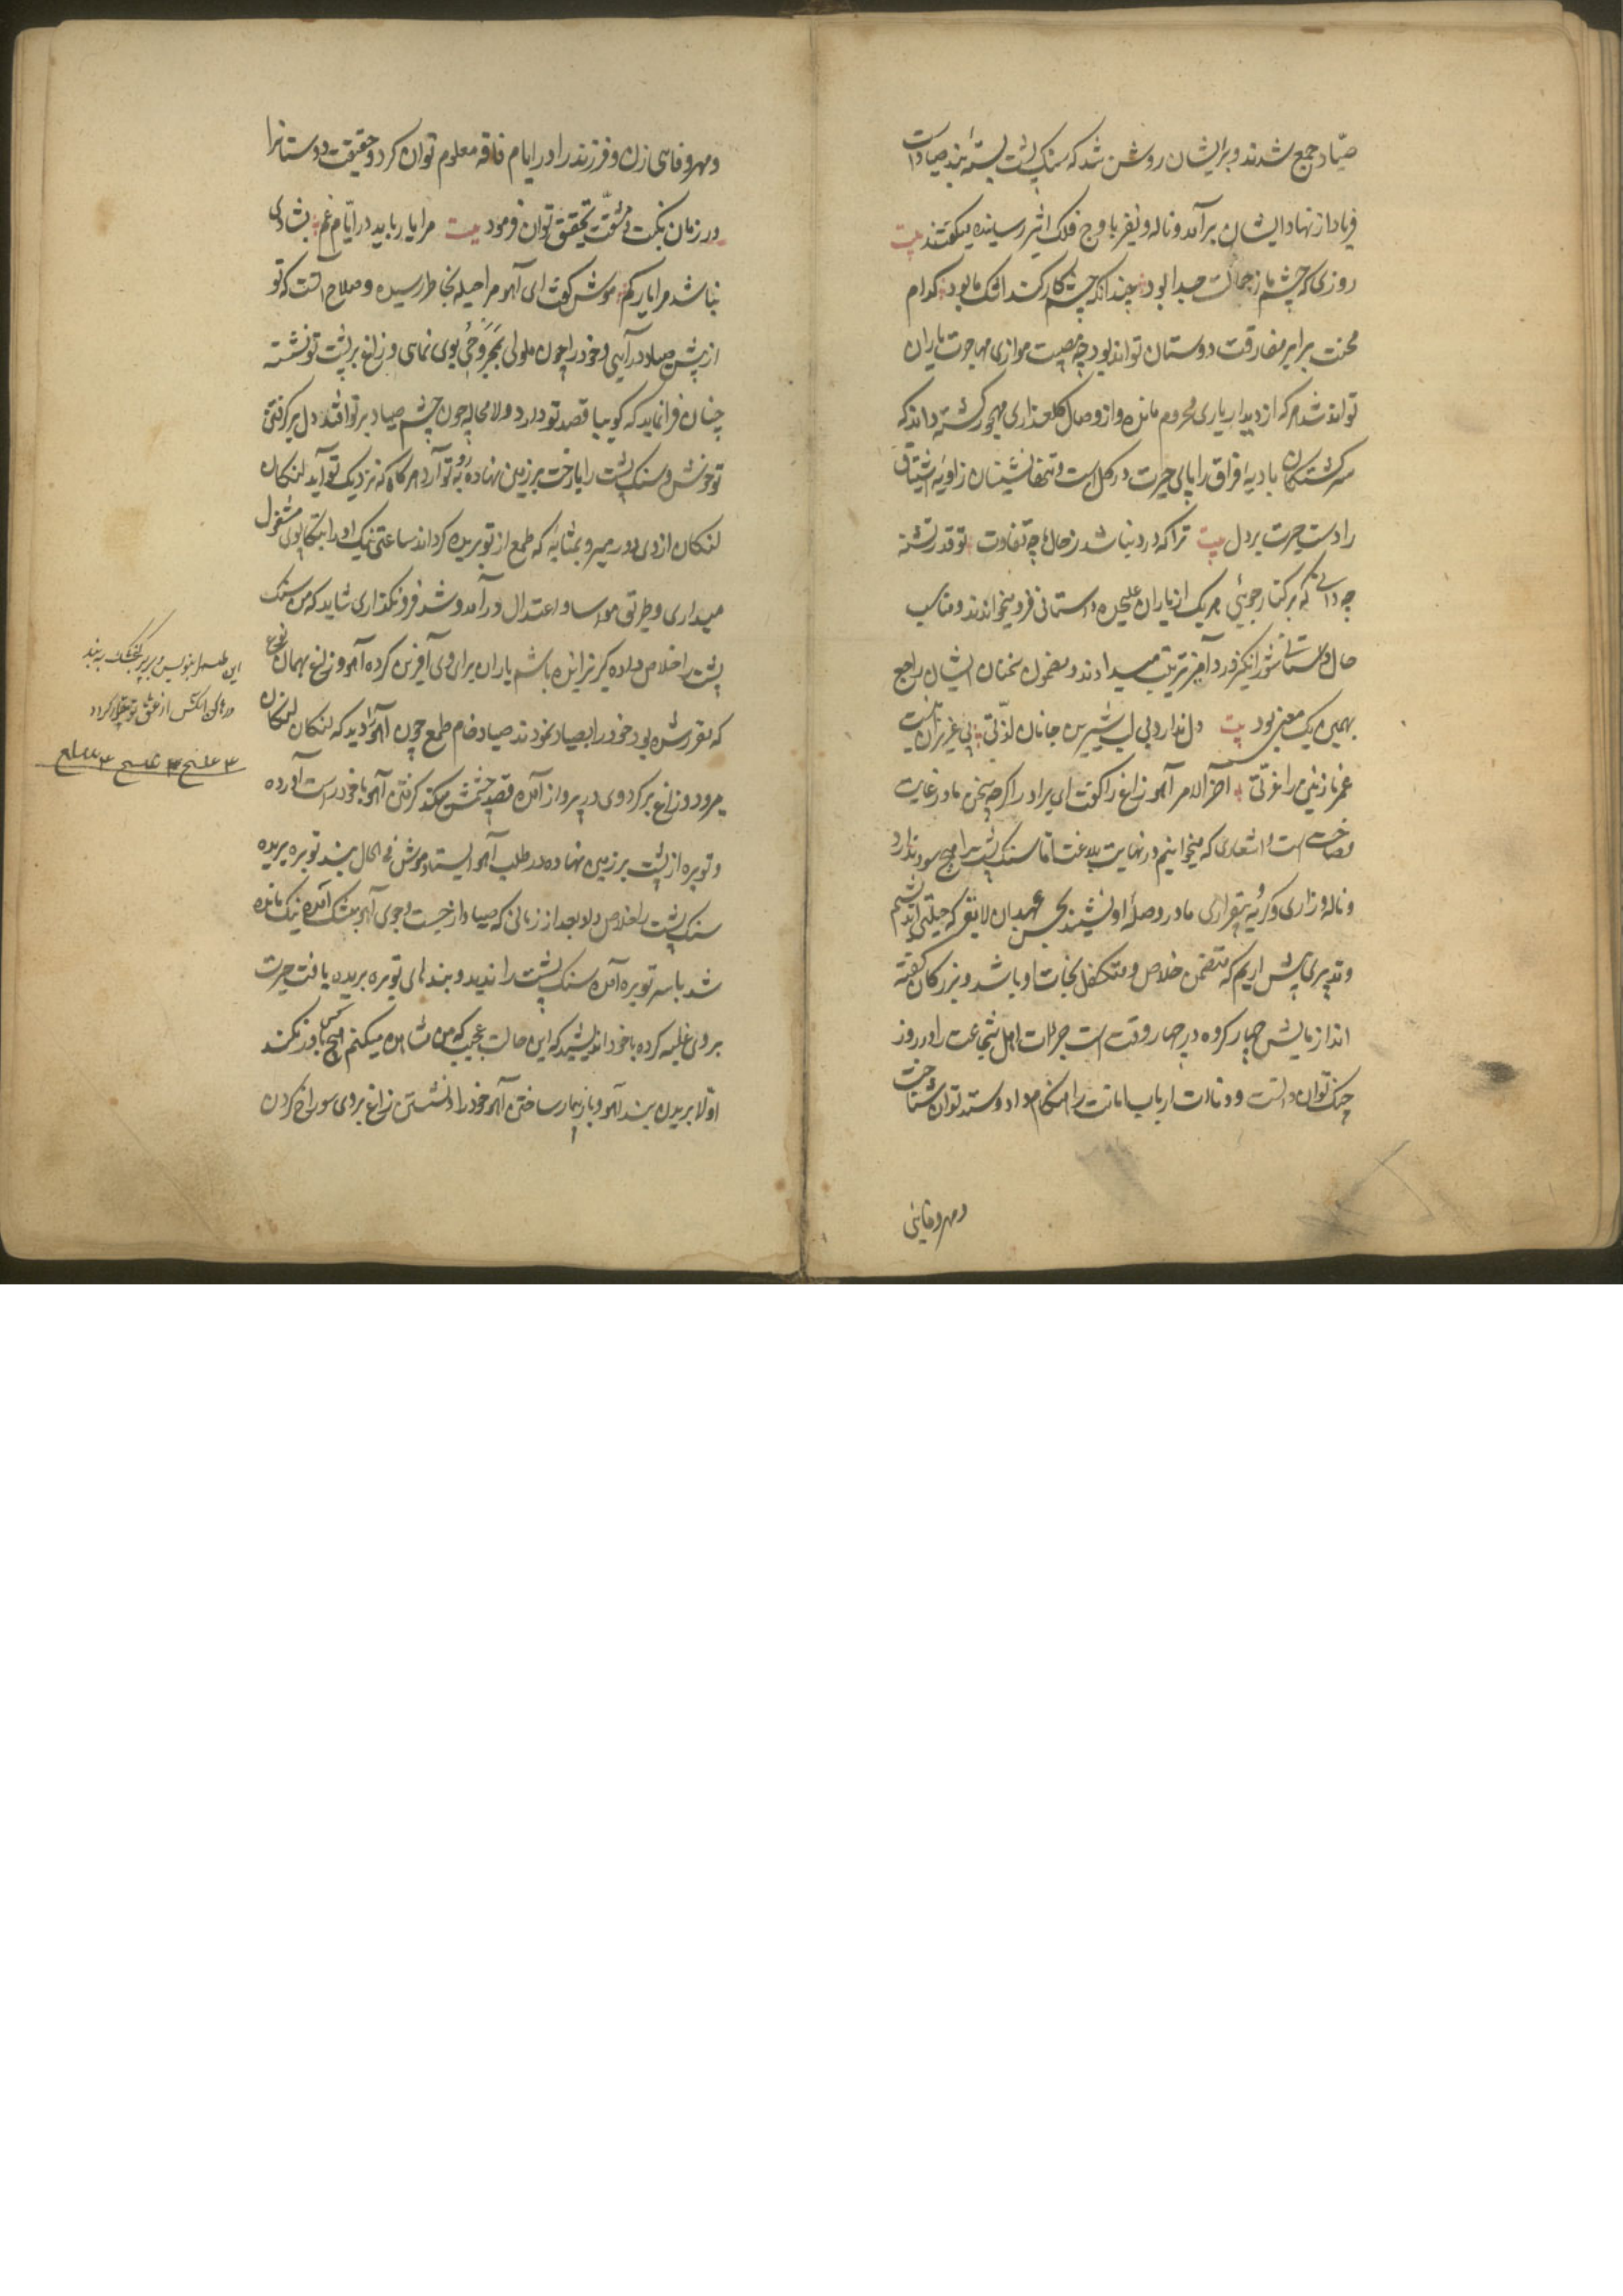 صیّاد جمع شدند و بر ایشان روشن شد که سنک پشت بستهٔ بند صیاد است
فریاد از نهاد ایشان برآمد و ناله و نفیر باوج فلک اثیر رسیده میکفتند بیت
روزی که چشم ما ز جمالت جدا بود چندانکه چشم کار کند اشک ما بود کدام
محنت برابر مفارقت دوستان تواند بود و چه مصیبت موازی مهاجرت یاران
تواند شد هر که از دیدار یاری محروم مانده و از وصال کلعذاری مهجور کشته داند که
سرکشتکان بادیهٔ فراق را پای حیرت در کل است و تنها نشینان زاویهٔ اشتیاق
را دست حسرت بر دل بیت ترا که درد نباشد ز حال ما چه تفاوت تو قدر تشنه
چه دانی که بر کنار جوئی هر یک از یاران علیحده داستانی فرو میخواندند و مناسب
حال داستانی شورانکیز درد آمیز ترتیب میدادند و مضمون سخنان ایشان راجع
بهمین یک معنی بود بیت دل ندارد بی لب شیرین جانان لذّتی بی عزیزان نیست
عمر نازنین را عزّتی آخر الامر آهو زاغ را کفت ای برادر اکرچه سخن ما در غایت
فصاحت است و اشعاری که میخوانیم در نهایت بلاغت اما سنک پشت را هیچ سود ندارد
و ناله و زاری و کریه و بیقراری ما در حوصلهٔ او ننشیند بحسن عهد آن لایق که حیلتی اندیشیم
و تدبیری پیش آریم که متضمن خلاص و متکفل نجات او باشد و بزرکان کفته
اند آزمایش چهار کروه در چهار وقت است جرات اهل شجاعت را در روز
جنک توان دانست و دیانت ارباب امانت را هنکام داد و ستد توان شناخت
و مهر و فای
و مهر و فای زن و فرزند را در ایام فاقه معلوم توان کرد و حقیقت دوستانرا
در زمان نکبت و مشقّت تحقیق توان فرمود بیت مرا یار باید در ایّام غم بشادی
نباشد مرا یار کم موش کفت ای آهو مرا حیله بخاطر رسیده و صلاح آنست که تو
از پیش صیاد درآیی و خود را چون ملولی مجروحی بوی نمای و زاغ بر پشت تو نشسته
چنان فرا نماید که کوییا قصد تو دارد و لا محاله چون چشم صیاد بر تو افتد دل بر کرفتن
تو خوش و سنک پشت را با رخت بر زمین نهاده رو به تو آرد هر کاه که نزدیک تو آید لنکان
لنکان از وی دور میرو بمثابهٔ که طمع از تو بریده کرداند ساعتی نیک او را بتکاپوی مشغول
میداری و طریق مواسا و اعتدال در آمد و شد فرو نکذاری شاید که من سنک
پشت را خلاص داده کریزانیده باشم یاران برای وی آفرین کرده آهو و زاغ بهمان نوع
که مقرر شده بود خود را بصیاد نمودند صیاد خام طمع چون آهو را دید که لنکان لنکان
میرود و زاغ بر کرد وی در پرواز آمده قصد چشمش میکند کرفتن آهو با خود راست آورده
و توبره از پشت بر زمین نهاده در طلب آهو ایستاد موش فی الحال بند توبره بریده
سنک پشت را خلاص داد بعد از زمانی که صیاد از جست و جوی آهو بتنک آمده نیک مانده
شد باسر توبره آمده سنک پشت را ندید و بندهای توبره بریده یافت حیرت
بر وی غلبه کرده با خود اندیشید که این حالت عجیب که من مشاهده میکنم هیچ کس باور نکند
اولا بریدن بند آهو و باز بیمار ساختن آهو خود را و نشستن زاغ بر وی سوراخ کردن
این طلسم بنویس و بر پر کنجشک به بند
و رها کن آنکس از عشق تو بیقرار کردد